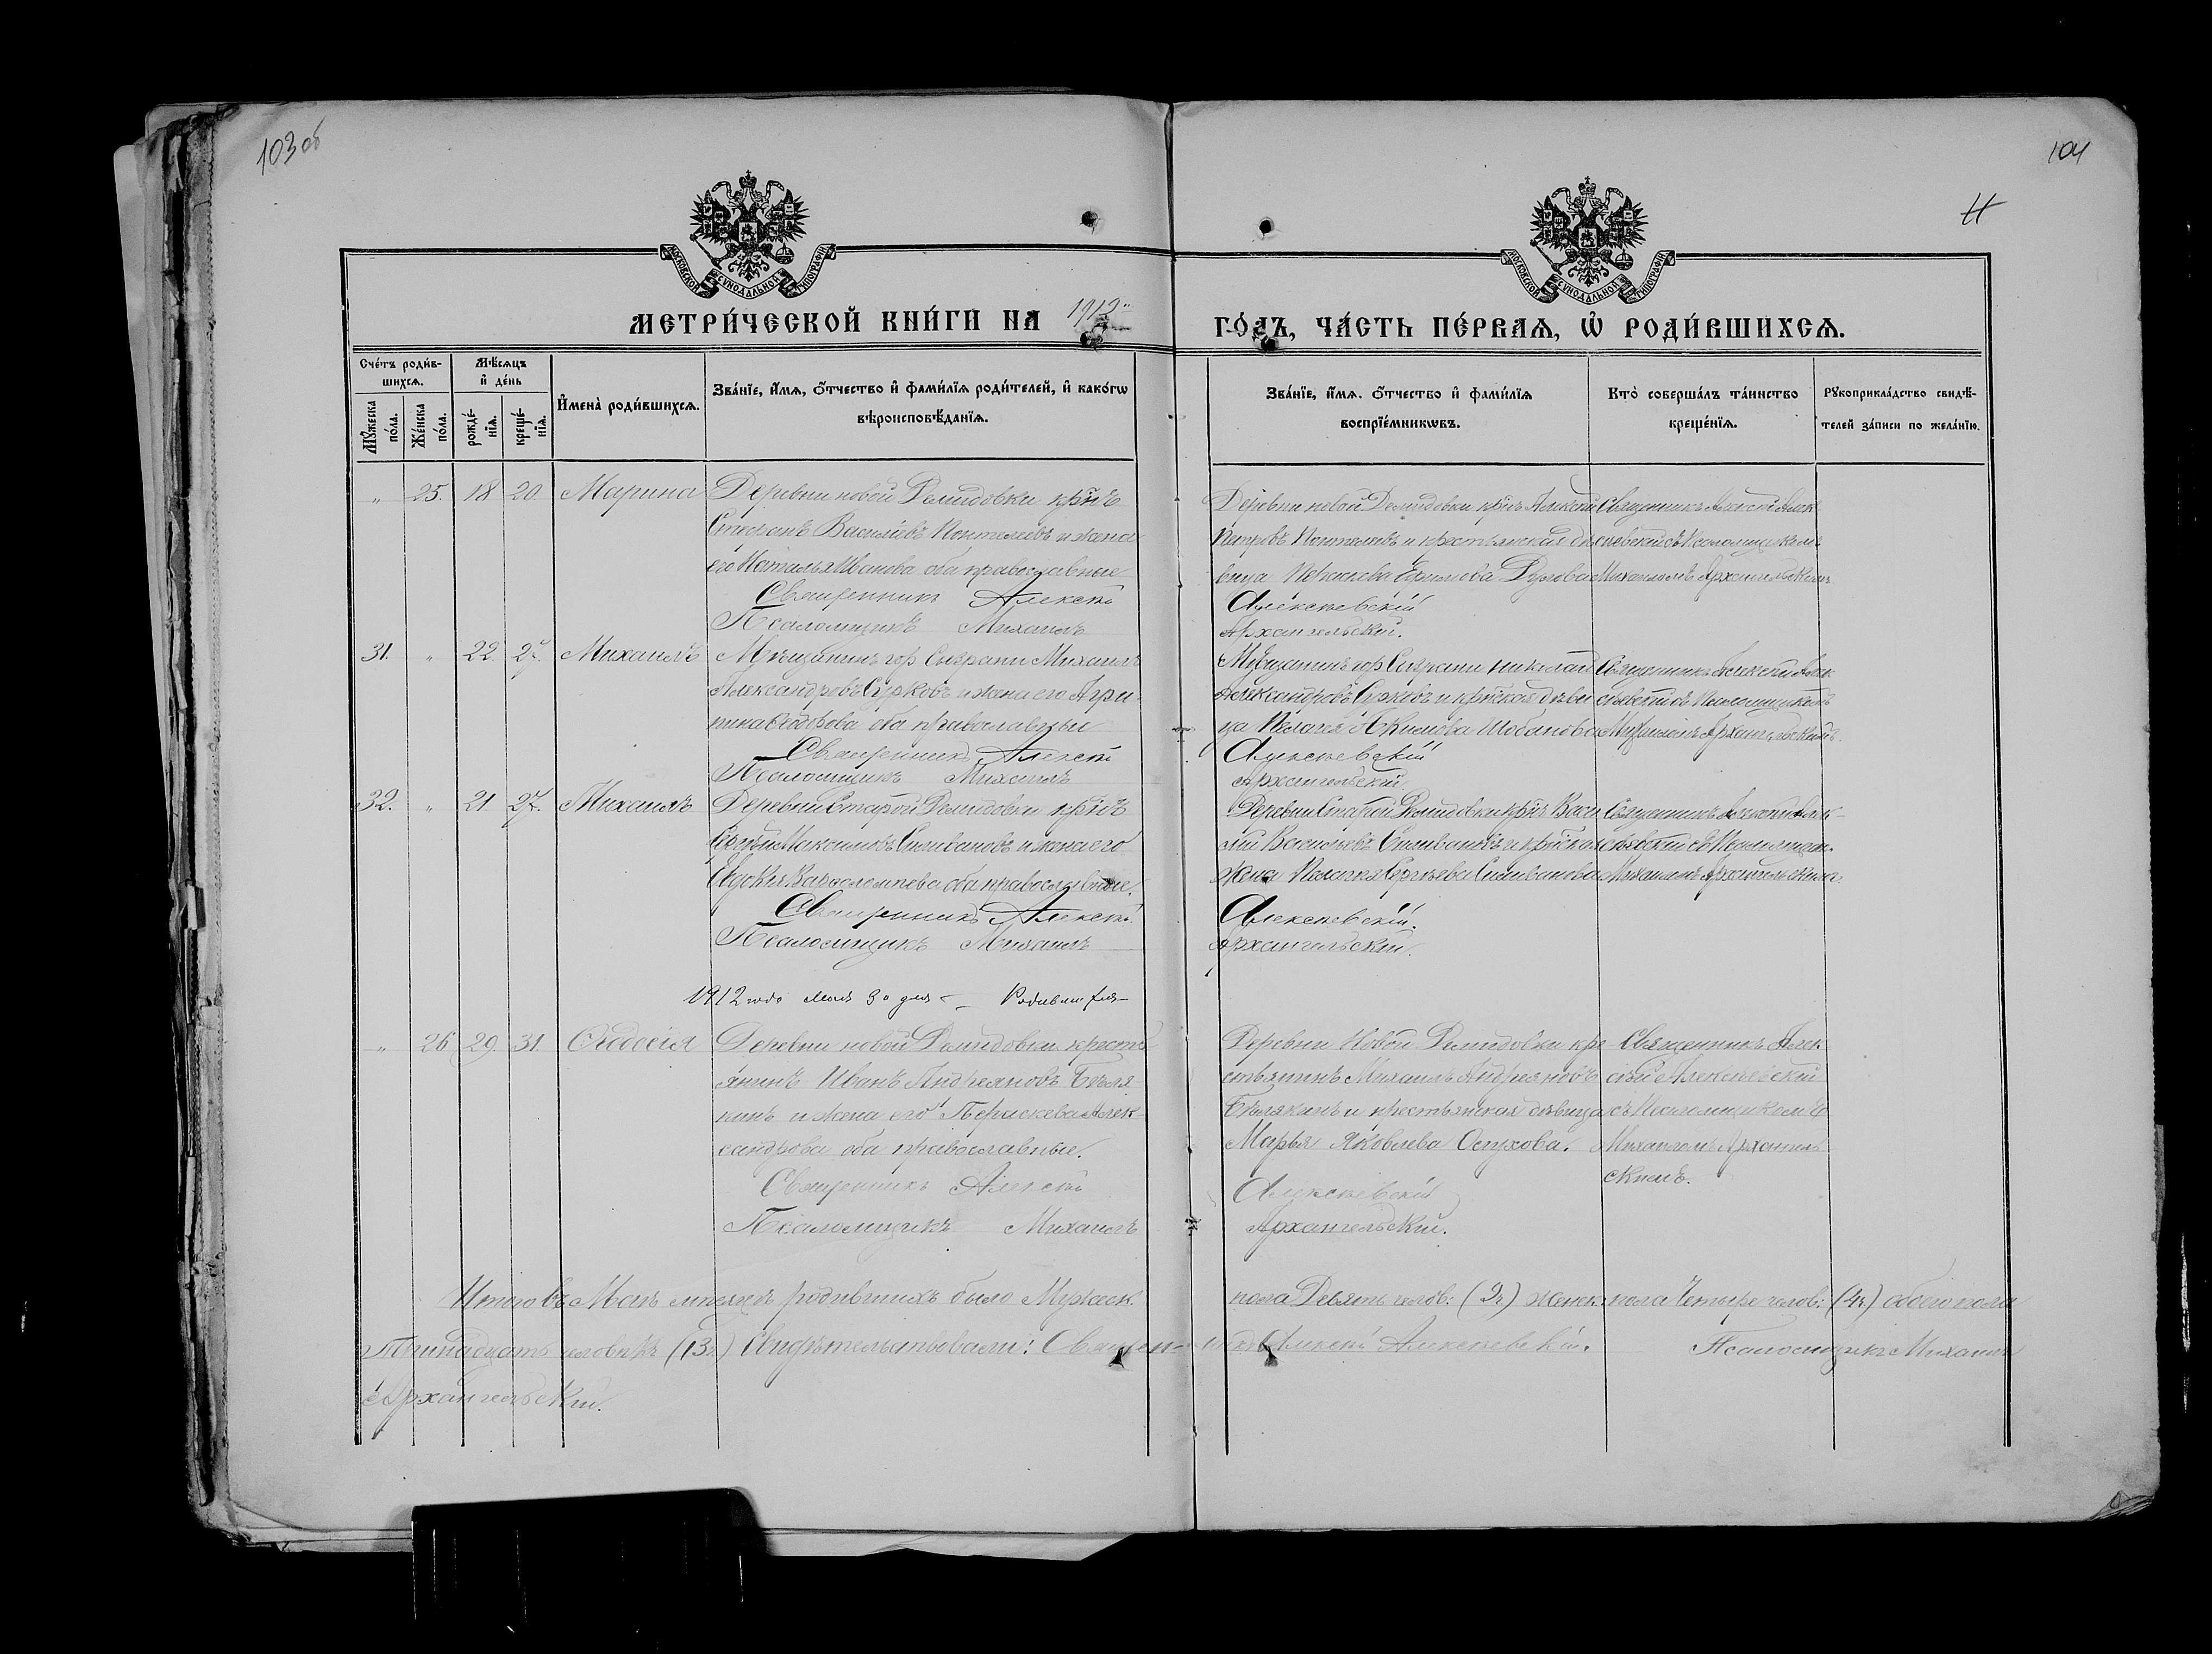 103 об
104
11
МОСКОВСКОЙ СѴНОДАЛЬНОЙ ТИПОГРАФІИ
МОСКОВСКОЙ СѴНОДАЛЬНОЙ ТИПОГРАФІИ
МЕТРИ́ЧЕСКОЙ КНИ́ГИ НА 1912 ГО́ДЪ, ЧА́СТЬ ПЕ́РВАѦ, Ѡ҆ РОДИ́ВШИХСѦ.
Сче́тъ роди́в-
шихсѧ.
Мꙋ́жеска по́ла.
Же́нска по́ла.
Мѣ́сѧцъ
и҆ де́нь
рожде́-
нїѧ.
креще́-
нїѧ.
И҆мена̀ роди́вшихсѧ.
Зва́нїе, и҆́мѧ, ѻ҆́тчество и҆ фами́лїѧ роди́телей, и҆ како́гѡ
вѣроисповѣ́данїѧ.
Зва́нїе, и҆́мѧ, ѻ҆́тчество и҆ фами́лїѧ
воспрїе́мникѡвъ.
Кто̀ соверша́лъ та́инство
креще́нїѧ.
Рꙋкоприкла́дство свидѣ́-
телей за́писи по жела́нїю.
" 25. 18 20 Марина
Деревни новой Демидовки кр-нъ
Стефанъ Васильевъ Понтелеевъ и жена
его Наталья Иванова оба православные
Священникъ Алексѣй
Псаломщикъ Михаилъ
Деревни новой Демидовки кр-нъ Алексѣй
Петровъ Понтелеевъ и крестьянская дѣ
вица Параскева Ефимова
Алексѣевскій
Архангельскій.
Священникъ Алексѣй Алек
сѣевскій съ Псаломщикомъ
Михаиломъ Архангельскимъ
31. " 22 27. Михаилъ
Мѣщанинъ гор Сызрани Михаилъ
Александровъ Сурковъ и жена его Агри-
пина Ѳедорова оба православные
Священникъ Алексѣй
Псаломщикъ Михаилъ
Мѣщанинъ гор Сызрани Николай
Александровъ Сурковъ и крестьянская дѣви
ца Пелагея Акимова Шобанова
Алексѣевскій
Архангельскій.
Священникъ Алексѣй Алек
сѣевскій съ Псаломщикомъ
Михаиломъ Архангельскимъ.
32. " 21 27. Михаилъ
Деревни Старой Демидовки кр-нъ
Сергѣй Максимовъ Силивановъ и жена его
Евдокія Варѳоломеева оба православные.
Священникъ Алексѣй
Псаломщикъ Михаилъ
Деревни Старой Демидовки кр-нъ Васи
лій Васильевъ Силивановъ и крестьянская
жена Пелагея Сергѣева Силиванова
Алексѣевскій.
Архангельскій.
Священникъ Алексѣй Алек-
сѣевскій съ Псаломщик.
Михаиломъ Архангельскимъ.
1912 года Мая 30 дня
" 26 29. 31. Ѳедосія
Деревни новой Демидовки кресть
янинъ Иванъ Андреяновъ Бѣля-
кинъ и жена его Параскева Алек-
сандрова оба православные.
Священникъ Алексѣй
Псаломщикъ Михаилъ
Деревни Новой Демидовки кре-
стьянинъ Михаилъ Андреяновъ
Бѣлякинъ и крестьянская дѣвица
Марья Яковлева Остухова.
Алексѣевскій
Архангельскій.
Священникъ Алек
сѣй Алексѣевскій
съ Псаломщикомъ
Михаиломъ Архангель
скимъ.
Итого въ Маѣ мѣсяцѣ родившихъ было Мужеск. пола Девять челов: (9ч) женск. пола Четыре челов: (4ч) обоего пола
Тринадцать человѣкъ (13ч) Свидѣтельствовали: Священникъ Алексѣй Алексѣевскій. Псаломщикъ Михаилъ
Архангельскій.